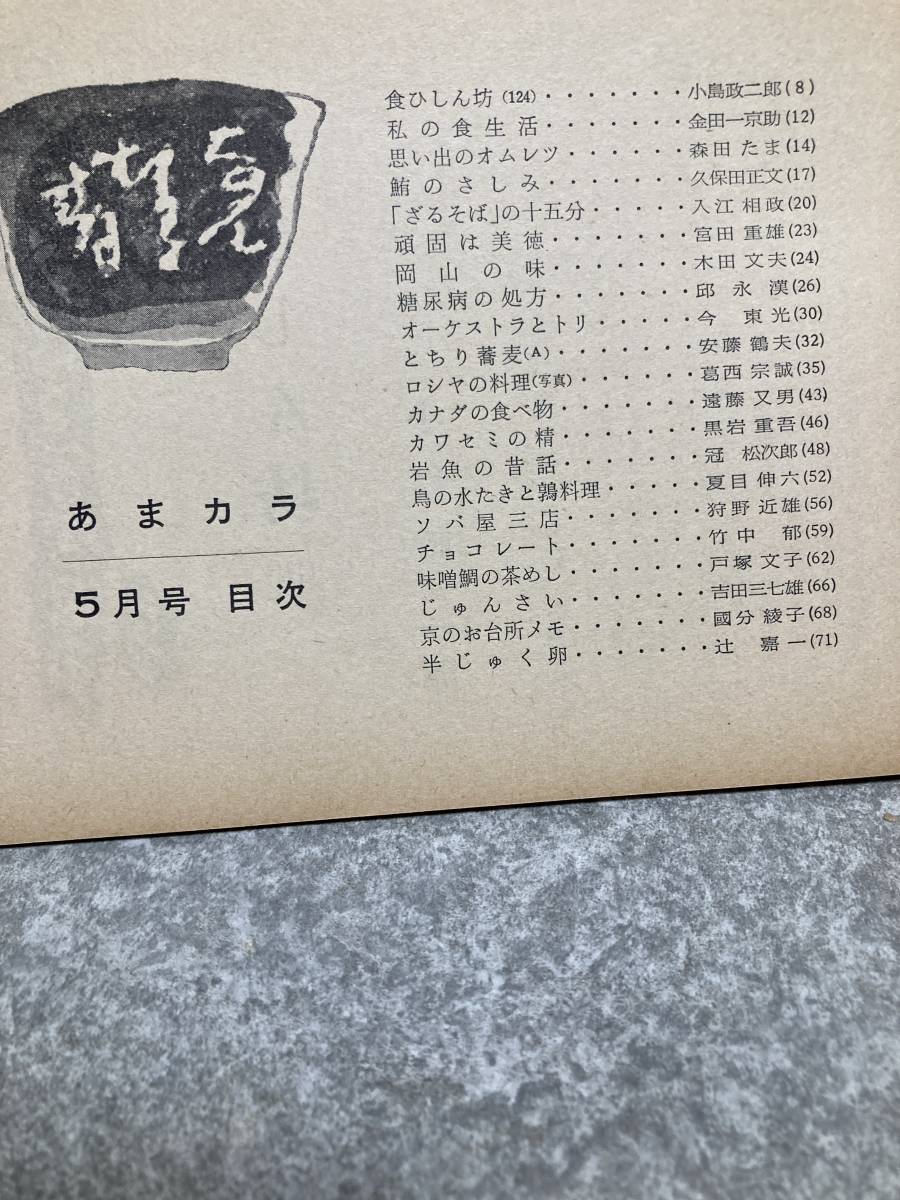 食ひしん坊(124)・・・・・・・小島政二郎(8)
私の食生活・・・・・・・金田一京助(12)
思い出のオムレツ・・・・・・森田たま(14)
鮪のさしみ・・・・・・・久保田正文(17)
「ざるそば」の十五分・・・・・入江相政(20)
頑固は美徳・・・・・・・宮田重雄(23)
岡山の味・・・・・・・木田文夫(24)
糖尿病の処方・・・・・・・邱永漢(26)
オーケストラとトリ・・・・・今東光(30)
とちり蕎麦(A)・・・・・・・安藤鶴夫(32)
ロシヤの料理(写真)・・・・・・葛西宗誠(35)
カナダの食べ物・・・・・・・遠藤又男(43)
カワセミの精・・・・・・・黒岩重吾(46)
岩魚の昔話・・・・・・・冠松次郎(48)
鳥の水たきと鶉料理・・・・・夏目伸六(52)
ソバ屋三店・・・・・・・狩野近雄(56)
チョコレート・・・・・・・竹中郁(59)
味噌鯛の茶めし・・・・・・・戸塚文子(62)
じゅんさい・・・・・・・吉田三七雄(66)
京のお台所メモ・・・・・・・國分綾子(68)
半じゅく卵・・・・・・・辻嘉一(71)
あまカラ
5月号 目次